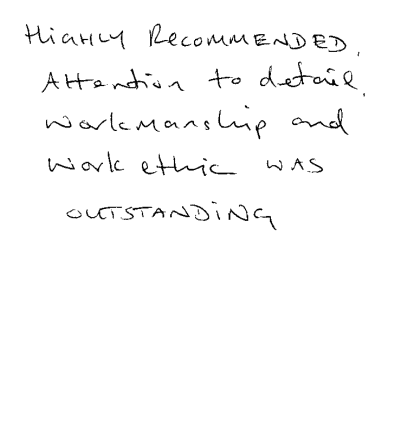 HIGHLY RECOMMENDED.
Attention to detail,
workmanship and
work ethic WAS
OUTSTANDING